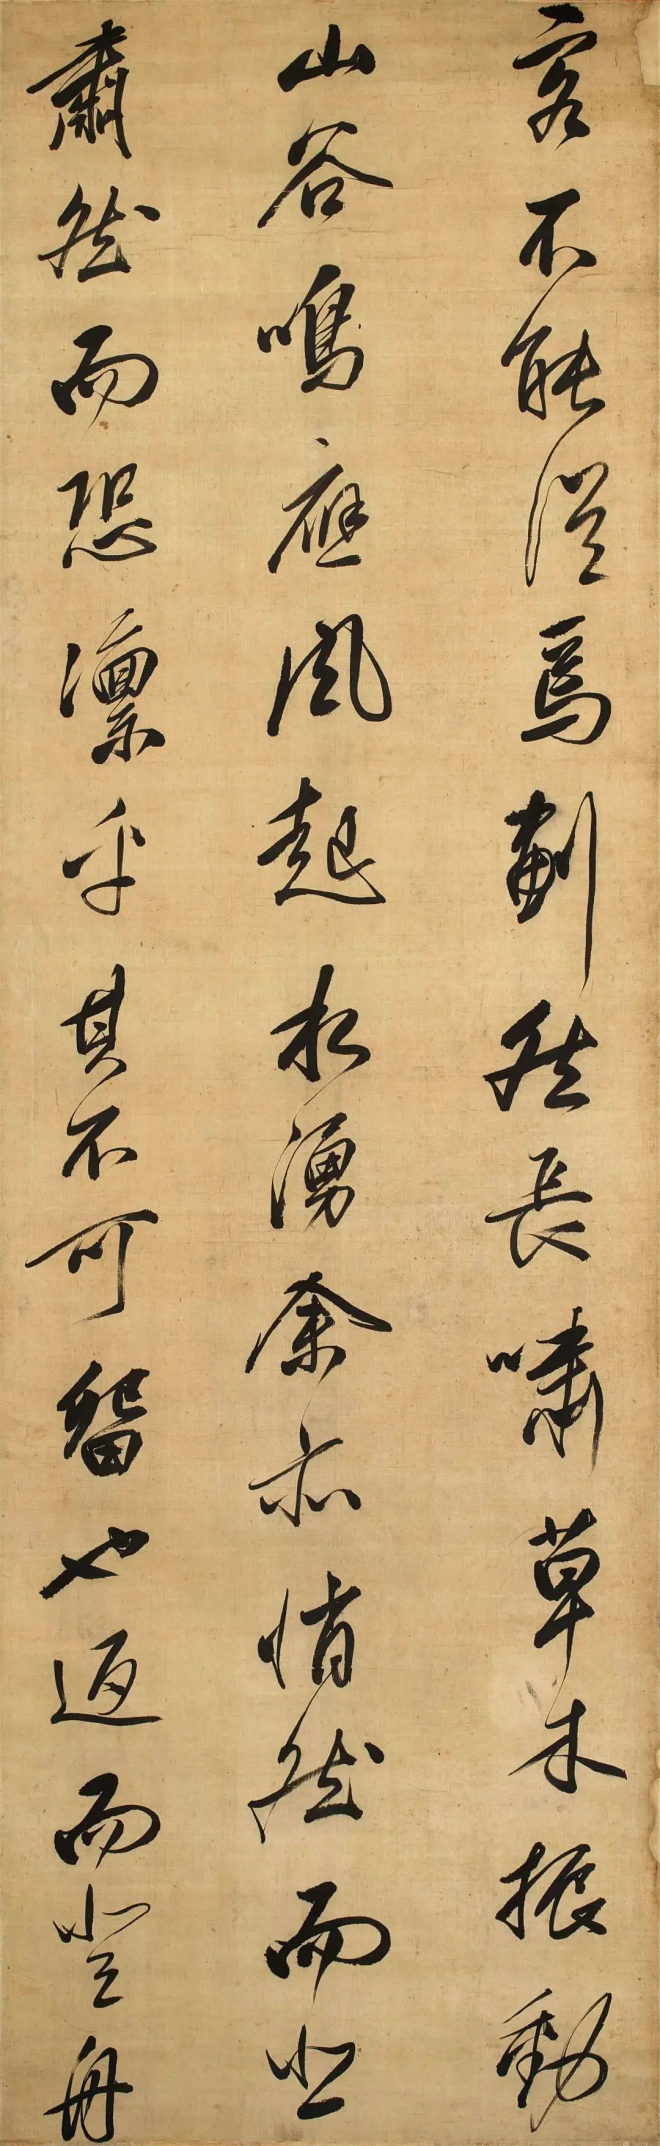 客不能從焉劃然長嘯草木振動
山谷鳴應風起水湧余亦悄然而悲
肅然而恐凜乎其不可留也返而登舟